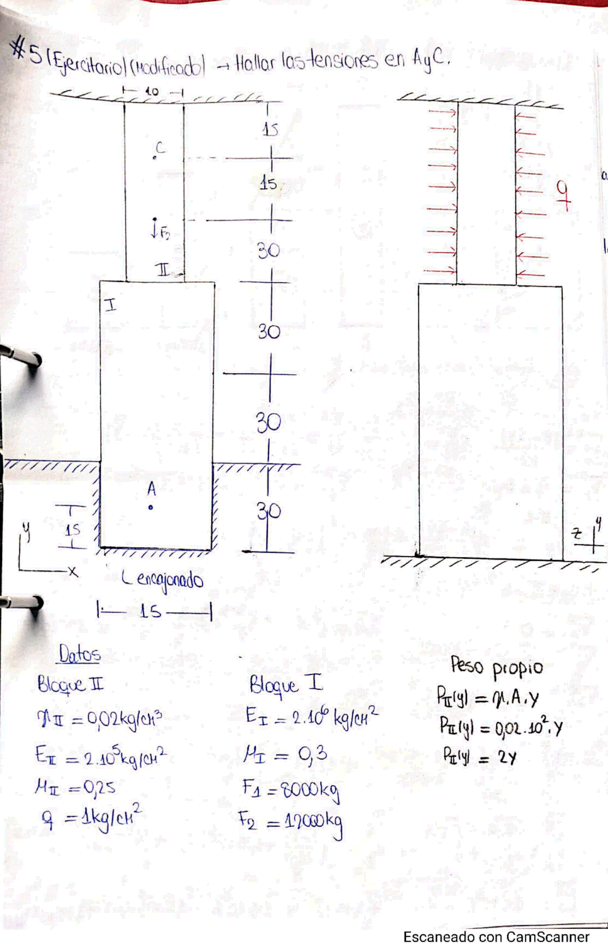 #5 (Ejercitario) (Modificado) → Hallar las tensiones en A y C.
10
15
C
15
F2
30
II
I
q
30
30
A
30
15
y
x
z
y
encajonado
15
Datos
Bloque II
γII = 0,02 kg/cm³
EII = 2.10⁵ kg/cm²
μII = 0,25
q = 1 kg/cm²
Bloque I
EI = 2.10⁶ kg/cm²
μI = 0,3
F1 = 8000 kg
F2 = 12000 kg
Peso propio
PII(y) = γ.A.y
PII(y) = 0,02.10².y
PII(y) = 2y
Escaneado con CamScanner